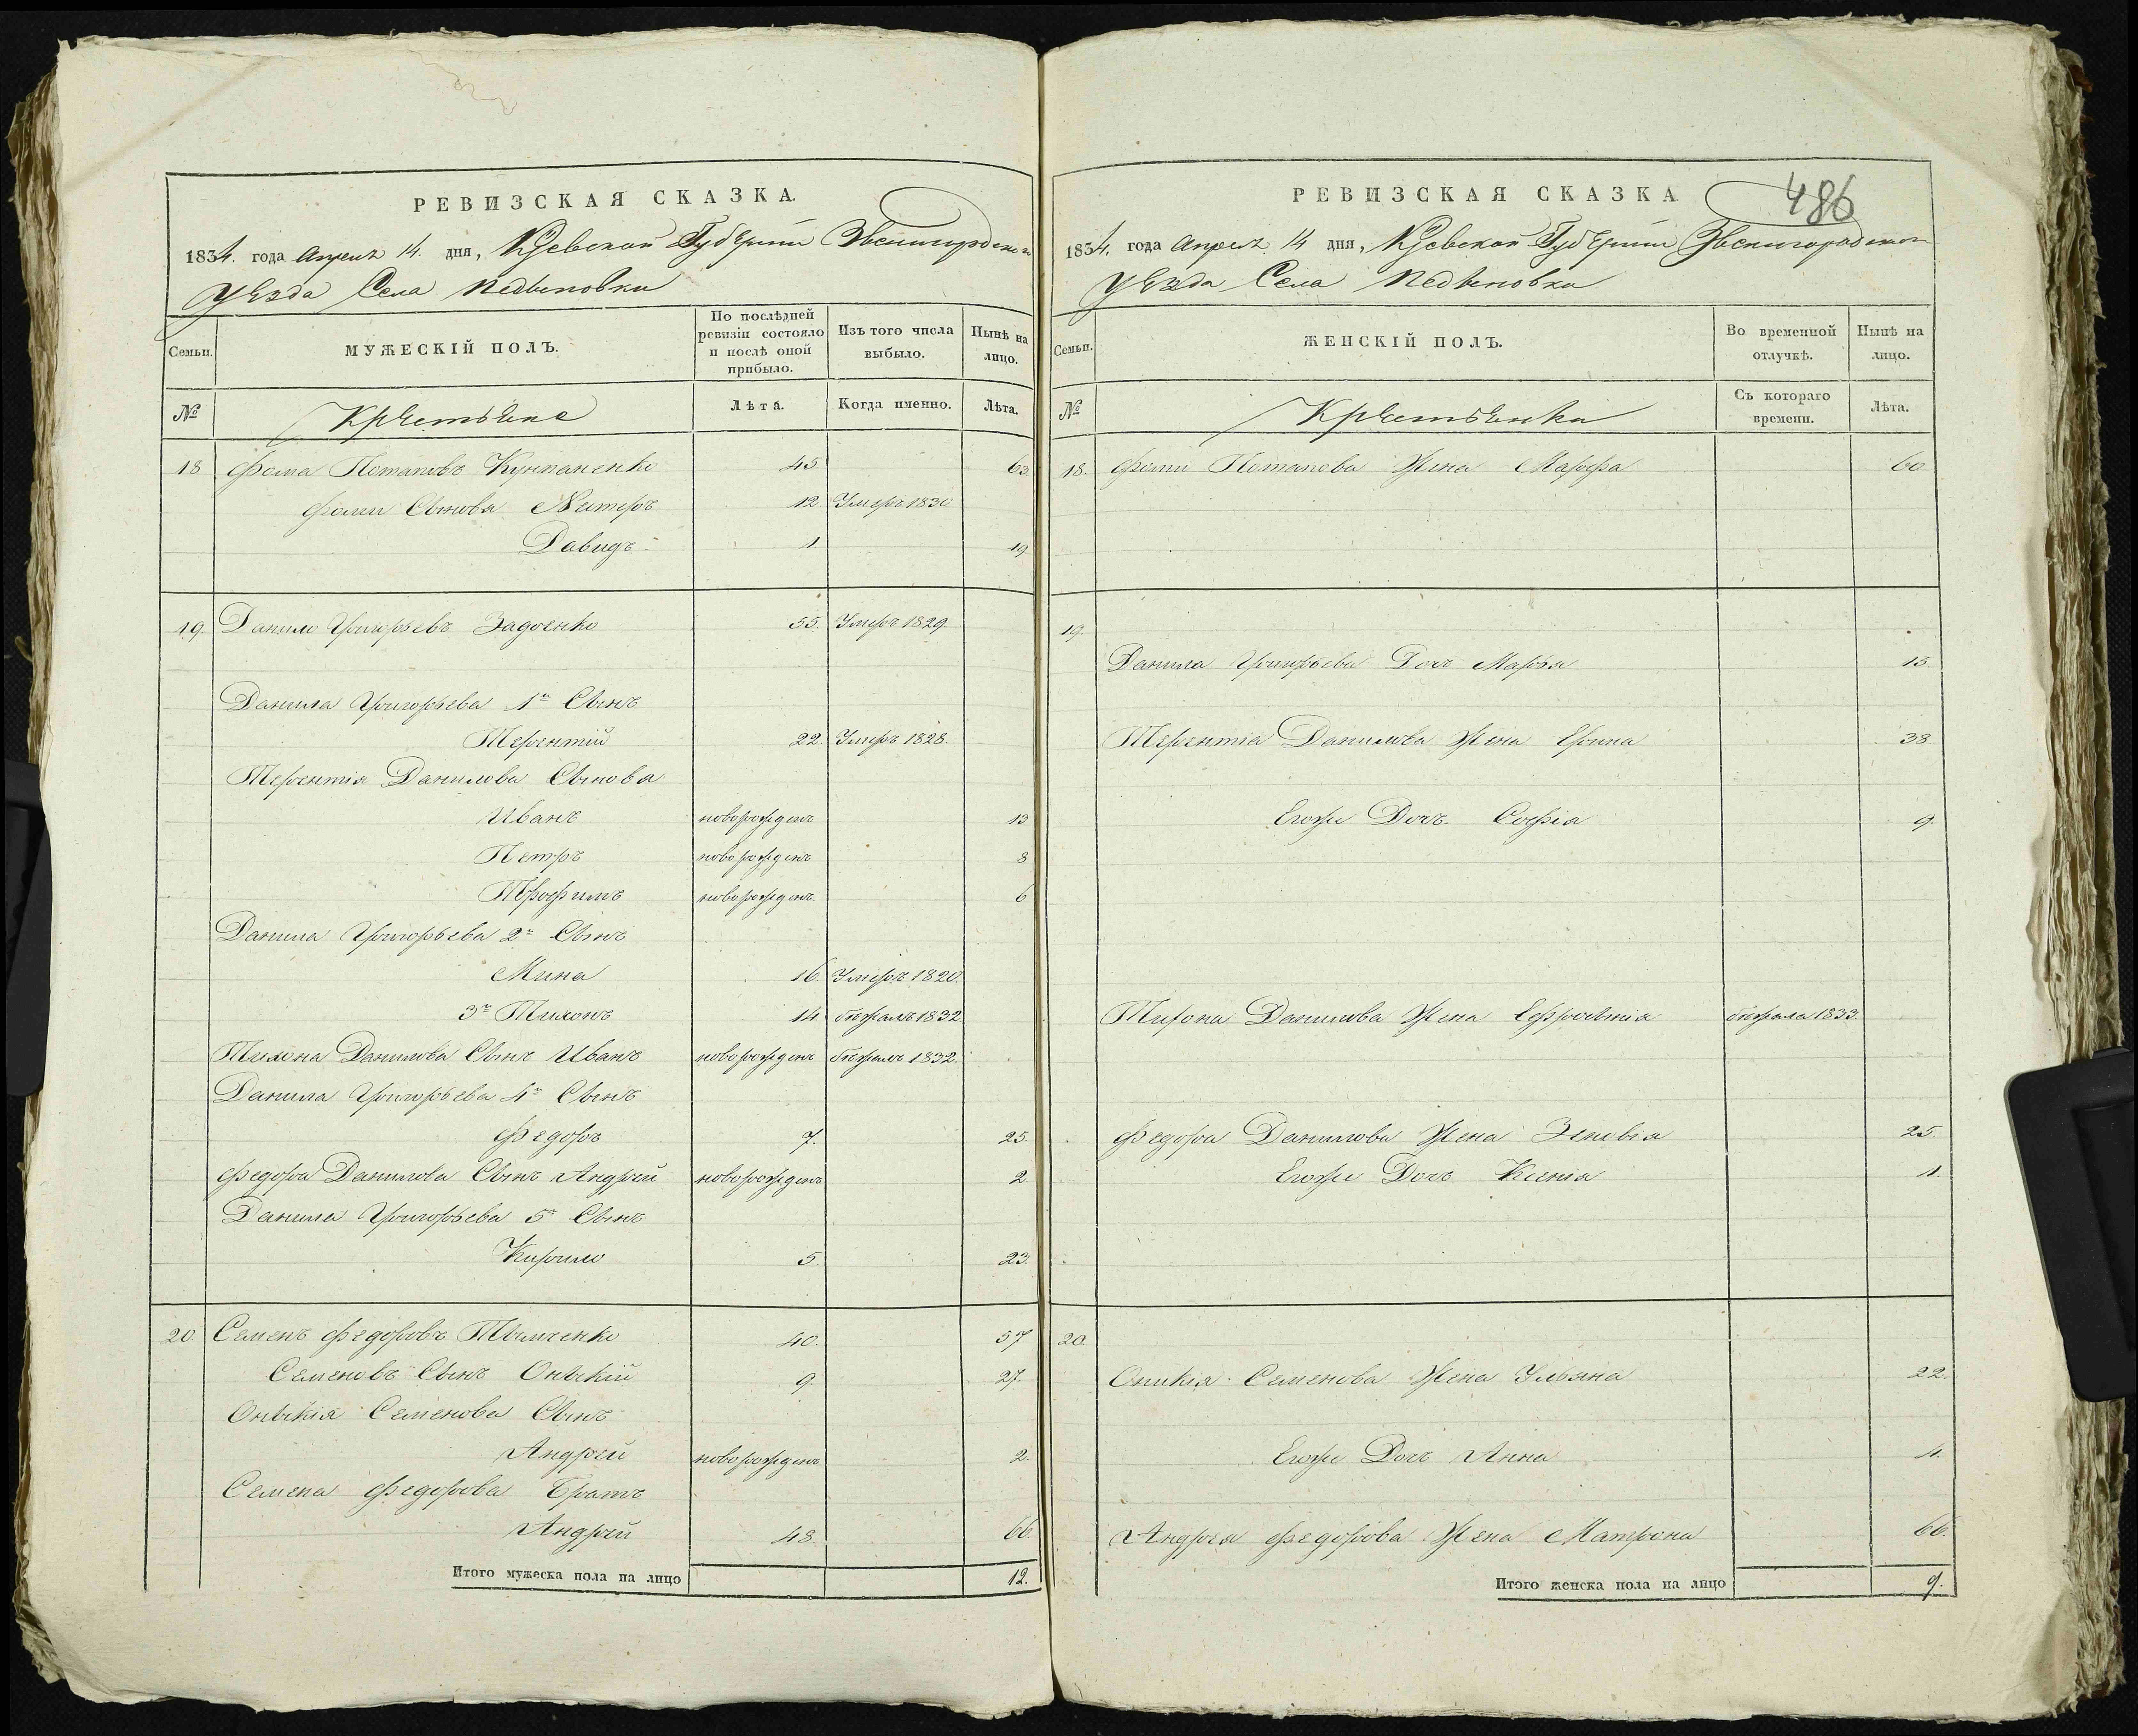 РЕВИЗСКАЯ СКАЗКА.
1834. года Апреля 14. дня, Кіевской Губерніи Звенигородскаго
Уезда Села
Семьи.
МУЖЕСКІЙ ПОЛЪ.
По послѣдней ревизіи состояло и послѣ оной прибыло.
Изъ того числа выбыло.
Нынѣ на лицо.
№
Крестьяне
Лѣта.
Когда именно.
Лѣта.
18 Фома Потаповъ 45 63.
Фомы Сынова 12 Умеръ 1830
Давидъ 1 19
19. Данило Григорьевъ Задоенко 55. Умеръ 1829.
Данила Григорьева 1й Сынъ
Терентій 22. Умеръ 1828.
Терентія Данилова Сынова
Иванъ новорожденъ 13
Петръ новорожденъ 8
Трофимъ новорожденъ 6
Данила Григорьева 2й Сынъ
Мина 16. Умеръ 1820.
3й Тихонъ 14 бѣжалъ 1832
Тихона Данилова Сынъ Иванъ новорожденъ бѣжалъ 1832.
Данила Григорьева 4й Сынъ
Федоръ 7. 25.
Федора Данилова Сынъ Андрей новорожденъ 2.
Данила Григорьева 5й Сынъ
Кирило 5. 23.
20. Семенъ Федоровъ Тымченко 40. 57
Семеновъ Сынъ Оныкій 9. 27
Оныкія Семенова Сынъ
Андрей новорожденъ 2.
Семена Федорова Братъ
Андрей 48. 66.
Итого мужеска пола на лицо 12.
РЕВИЗСКАЯ СКАЗКА
486
1834. года Апреля 14 дня, Кіевской Губерніи Звенигородского
Уезда Села
Семьи.
ЖЕНСКІЙ ПОЛЪ.
Во временной отлучкѣ.
Нынѣ на лицо.
№
Крестьянки
Съ котораго времени.
Лѣта.
18. Фомы Потапова Жена Марфа 60
19.
Данила Григорьева Дочь Марья 15.
Терентіа Данилова Жена Ирина 38
Егоже Дочь Софія 9.
Тихона Данилова Жена Ефросинія бѣжала 1833.
Федора Данилова Жена Зеновія 25.
Егоже Дочь Ксенія 1.
20.
Оникія Семенова Жена Ульяна 22.
Егоже Дочь Анна 4.
Андрея Федорова Жена Матрона 66.
Итого женска пола на лицо 9.